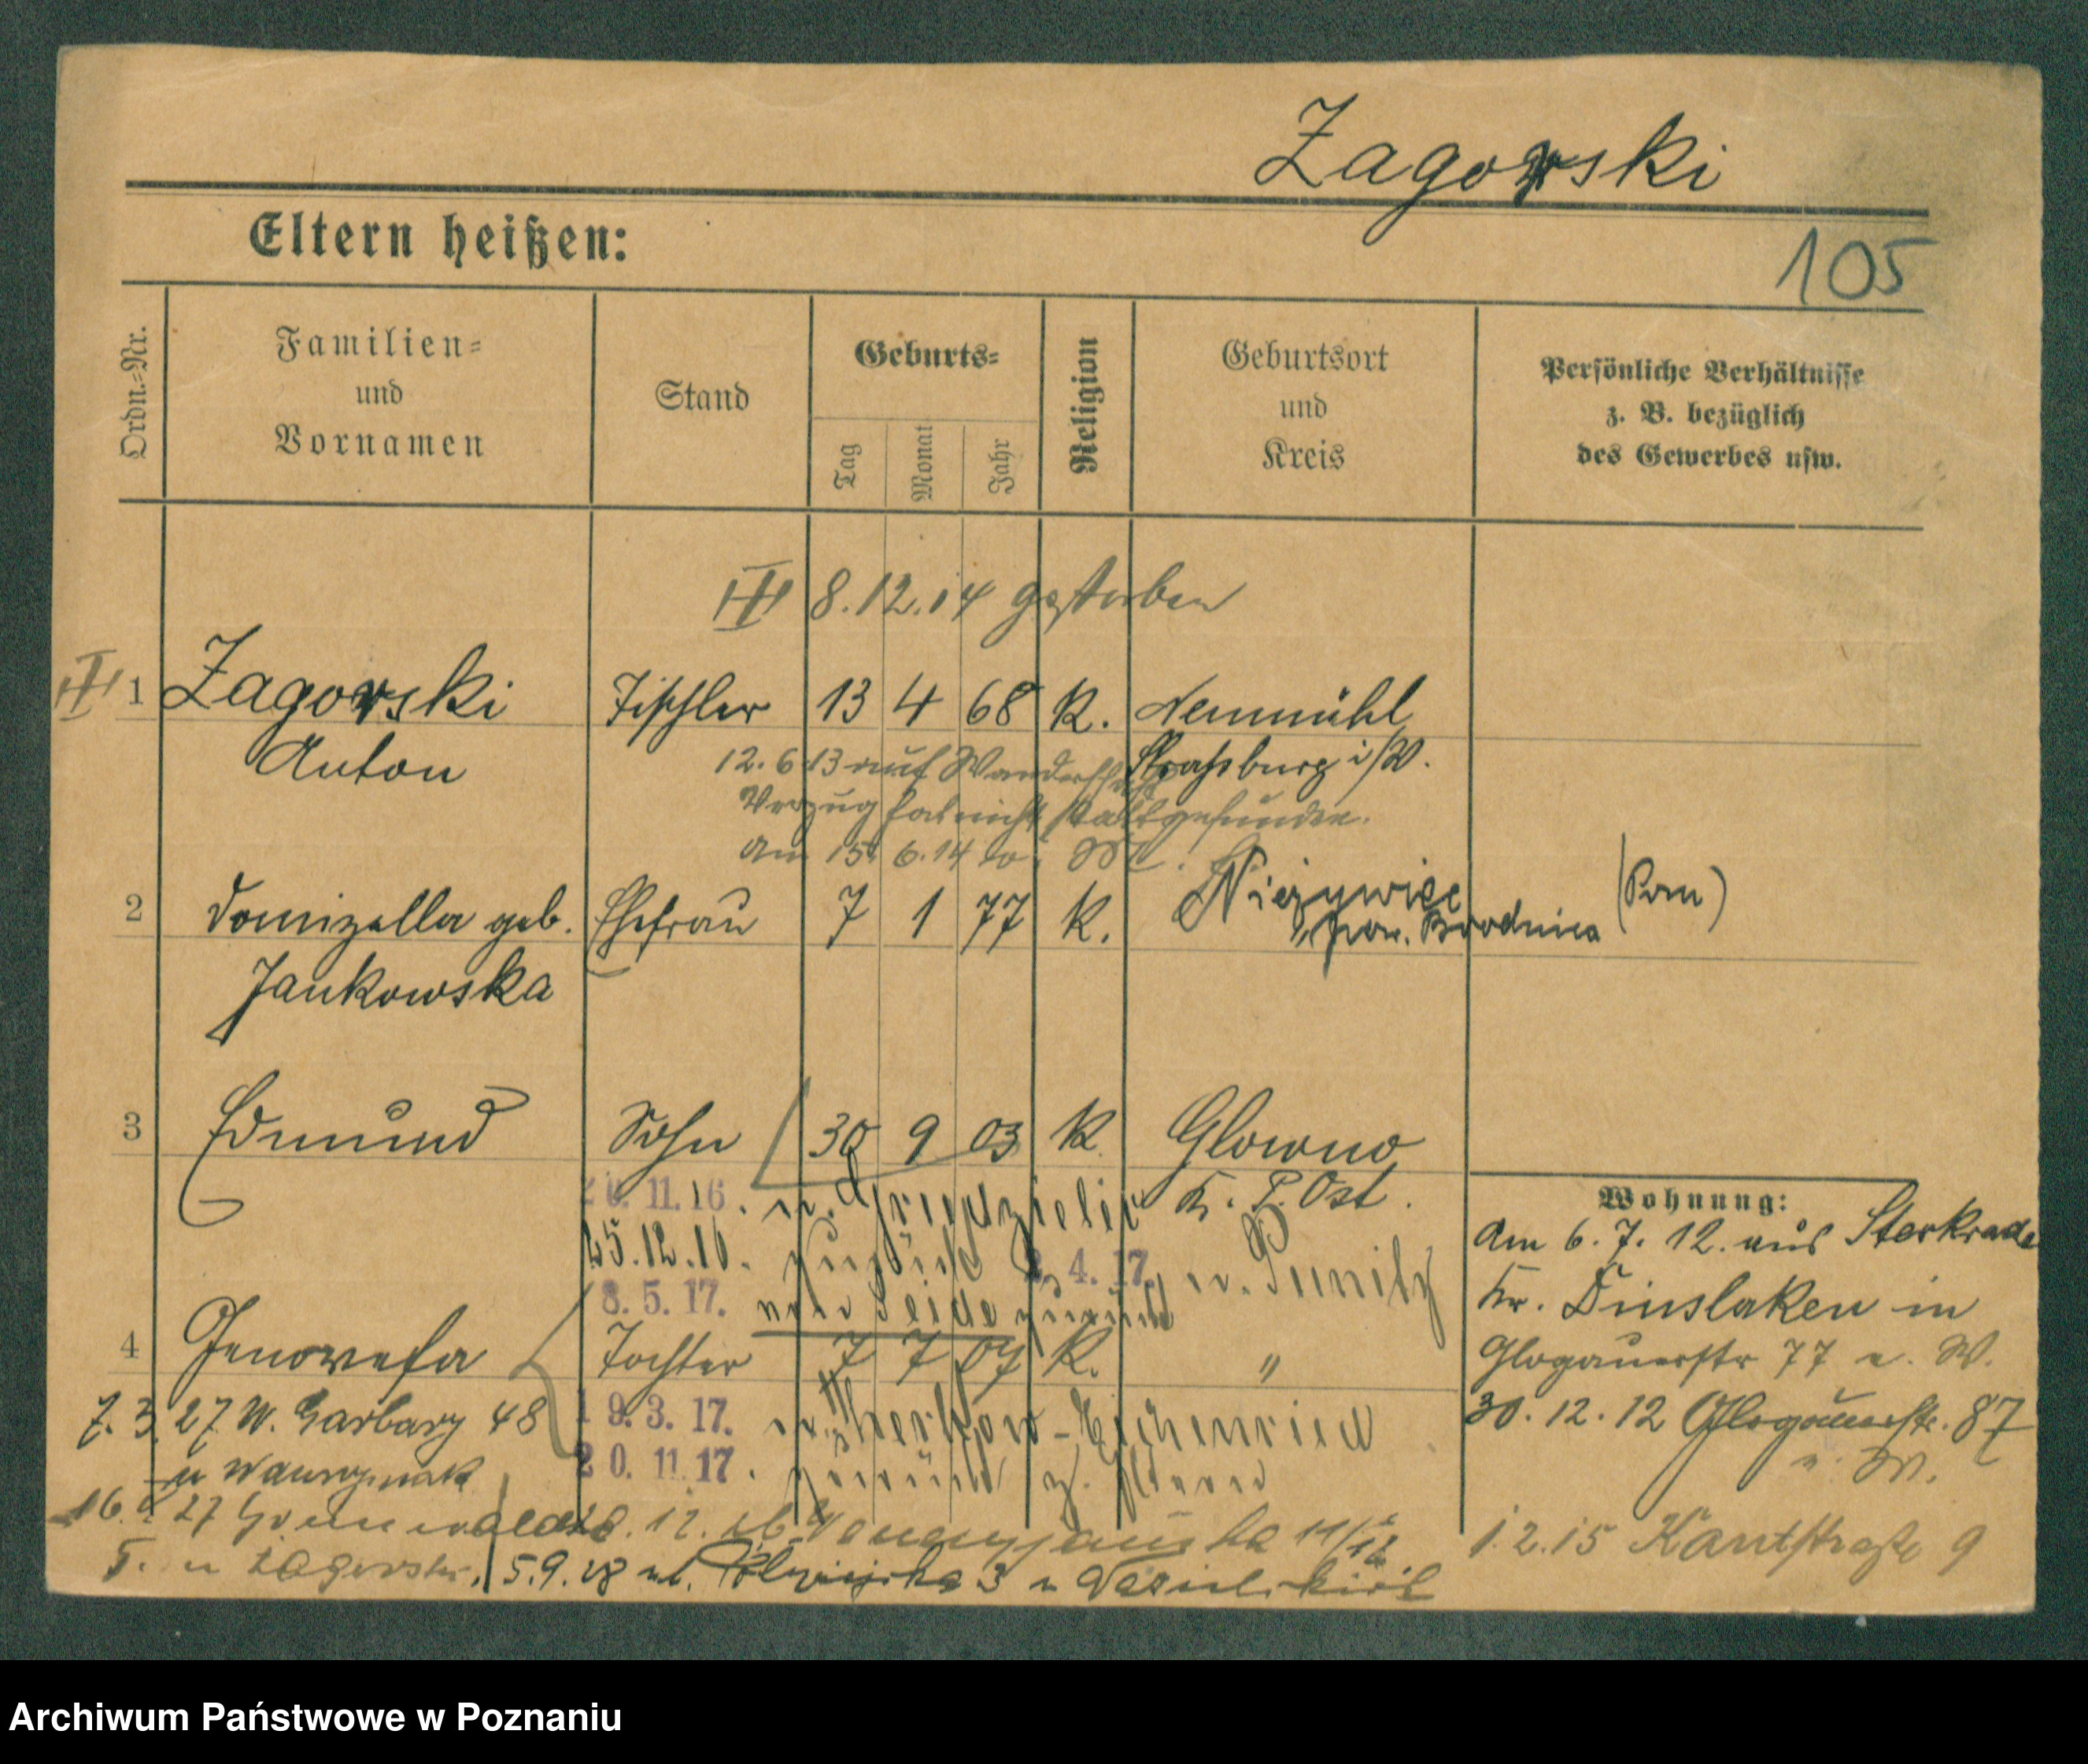 Zagorski
Eltern heißen:
105
Ordn.-Nr.
Familien-
und
Vornamen
Stand
Geburts-
Tag
Monat
Jahr
Religion
Geburtsort
und
Kreis
Persönliche Verhältnisse
z. B. bezüglich
des Gewerbes usw.
III 8.12.14 gestorben
III 1 Zagorski Tischler 13 4 68 K. Neumühl
Anton 12.6.13 auf Wanderschaft Strassburg i/W.
Verzug hat nicht stattgefunden.
am 15. 6.14
2 Domizella geb. Ehefrau 7 1 77 K. Nieżywięć (Pom)
pow. Brodnica
Jankowska
3 Edmund Sohn 30 9 03 K Glowno
11.16. n. K. P. Ost.
Wohnung:
am 6.7.12. aus Sterkrade
25.12.16. zurück 4.17. n. Punitz
Kr. Dinslaken in
8.5.17. zurück
4 Genowefa Tochter 7 7 07 K. "
Glogauerstr 77 W.
7.3.27 W. Garbary 48 19.3.17. n. -Eichenried
30.12.12 Glogauerstr. 87
u Wawrzyniak 20.11.17. zurück z. Eltern
16. 27 12.
1.2.15 Kantstraße 9
u Zagorski. 5.9.28 ul. 3 u
Archiwum Państwowe w Poznaniu